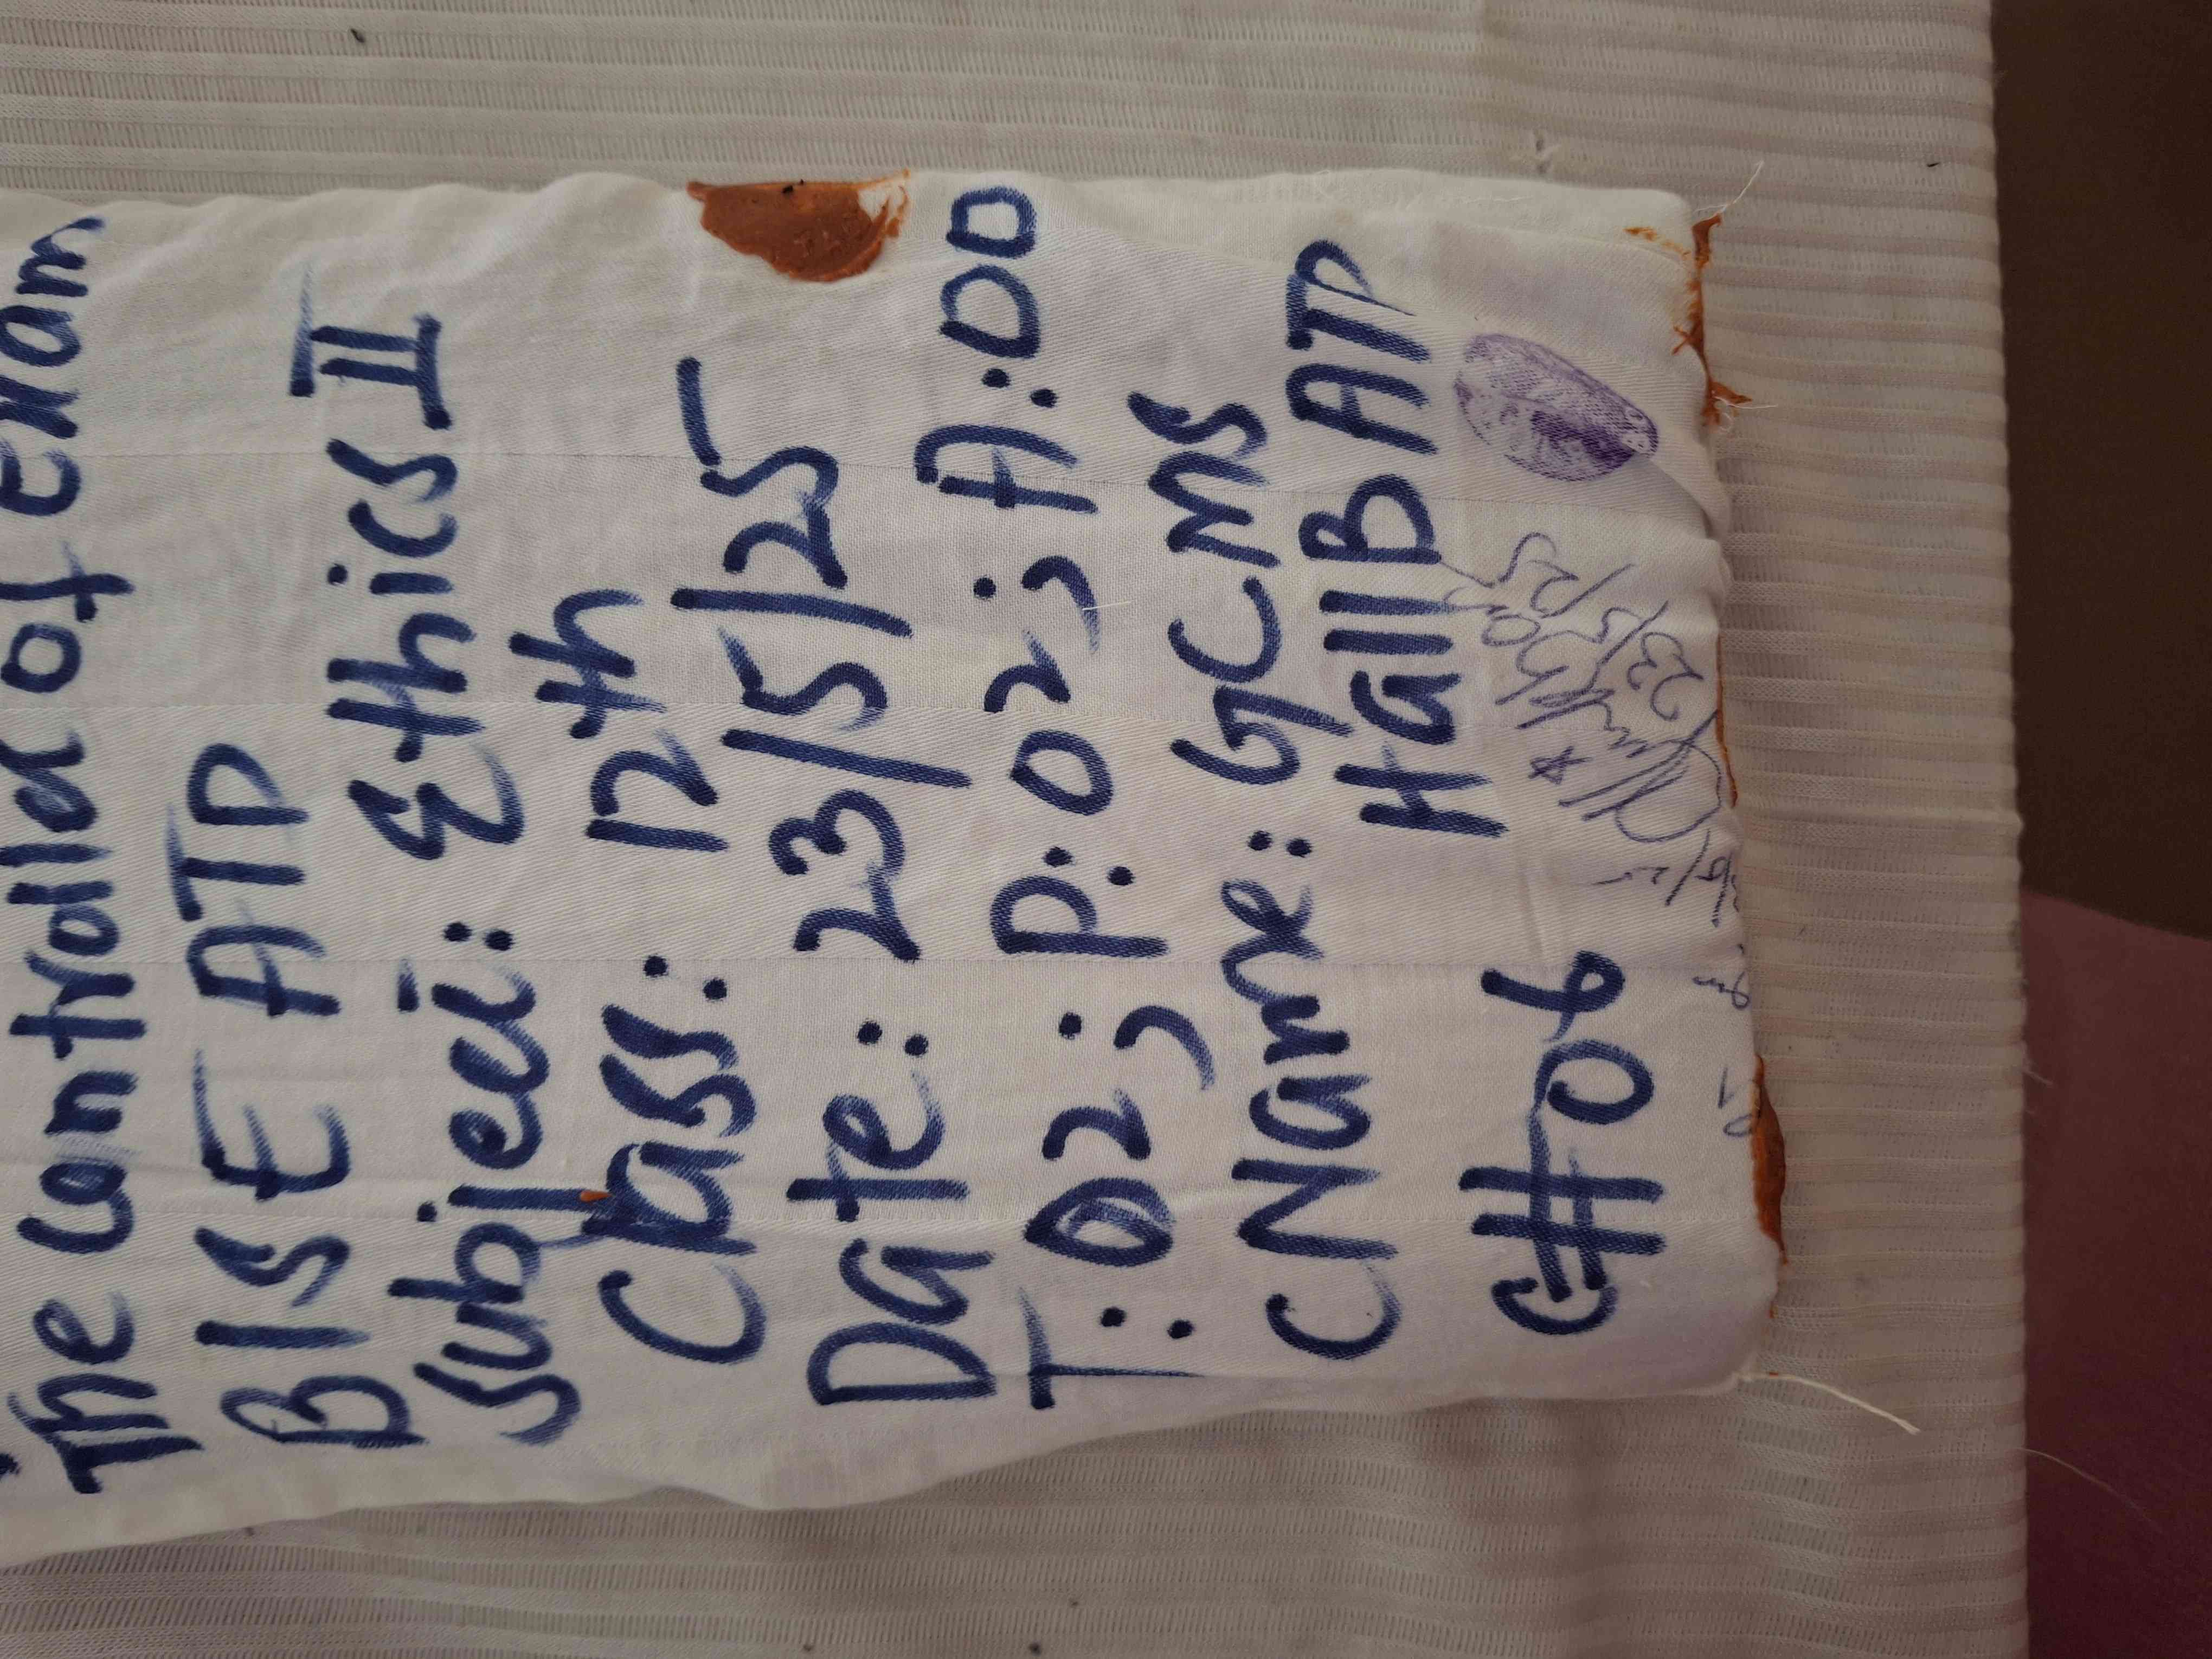 The controller of Exam
BISE ATD
Subject: Ethics II
Class: 12th
Date: 23/5/25
T: 02; P: 02; A: 00
C Name: GCMS
Hall B ATD
C# 06
23/5/25